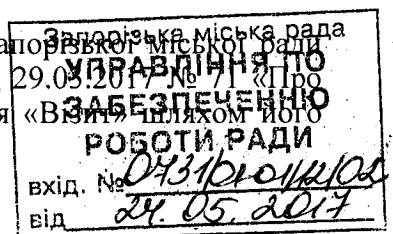 Запорізької міської ради
29.05.2017 № 71 «Про
я «Візит» шляхом його
Запорізька міська рада
УПРАВЛІННЯ ПО
ЗАБЕЗПЕЧЕННЮ
РОБОТИ РАДИ
вхід. №
від 24. 05. 2017